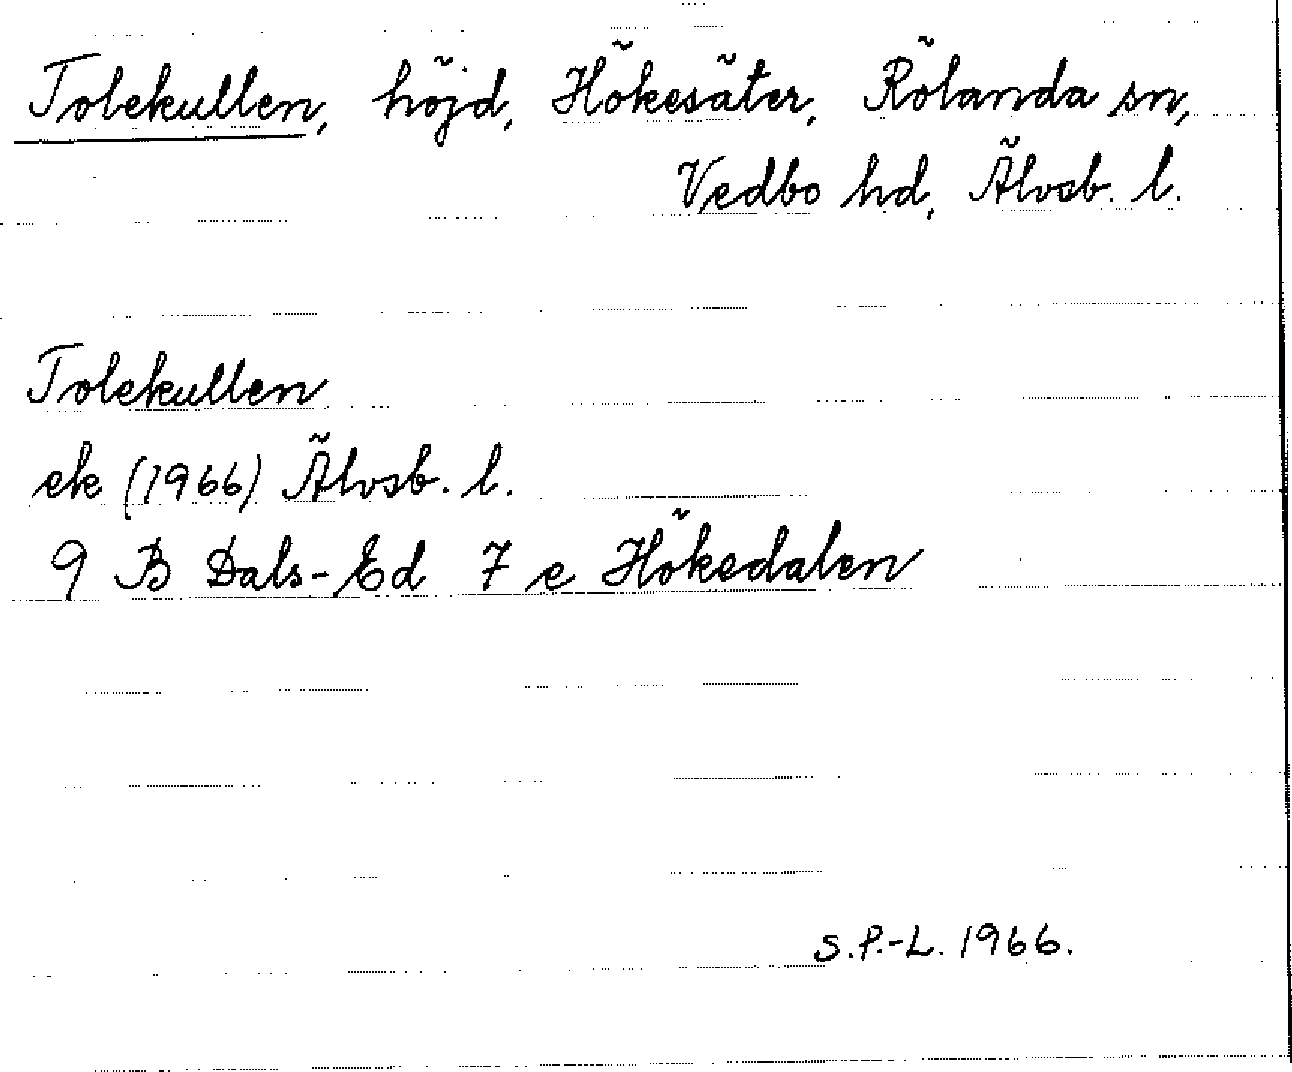 Tolekullen, höjd, Hökesäter, Rölanda sn,
Vedbo hd, Älvsb. l.
Tolekullen
ek (1966) Älvsb. l.
9 B Dals-Ed 7 e Hökedalen
S.P.-L. 1966.